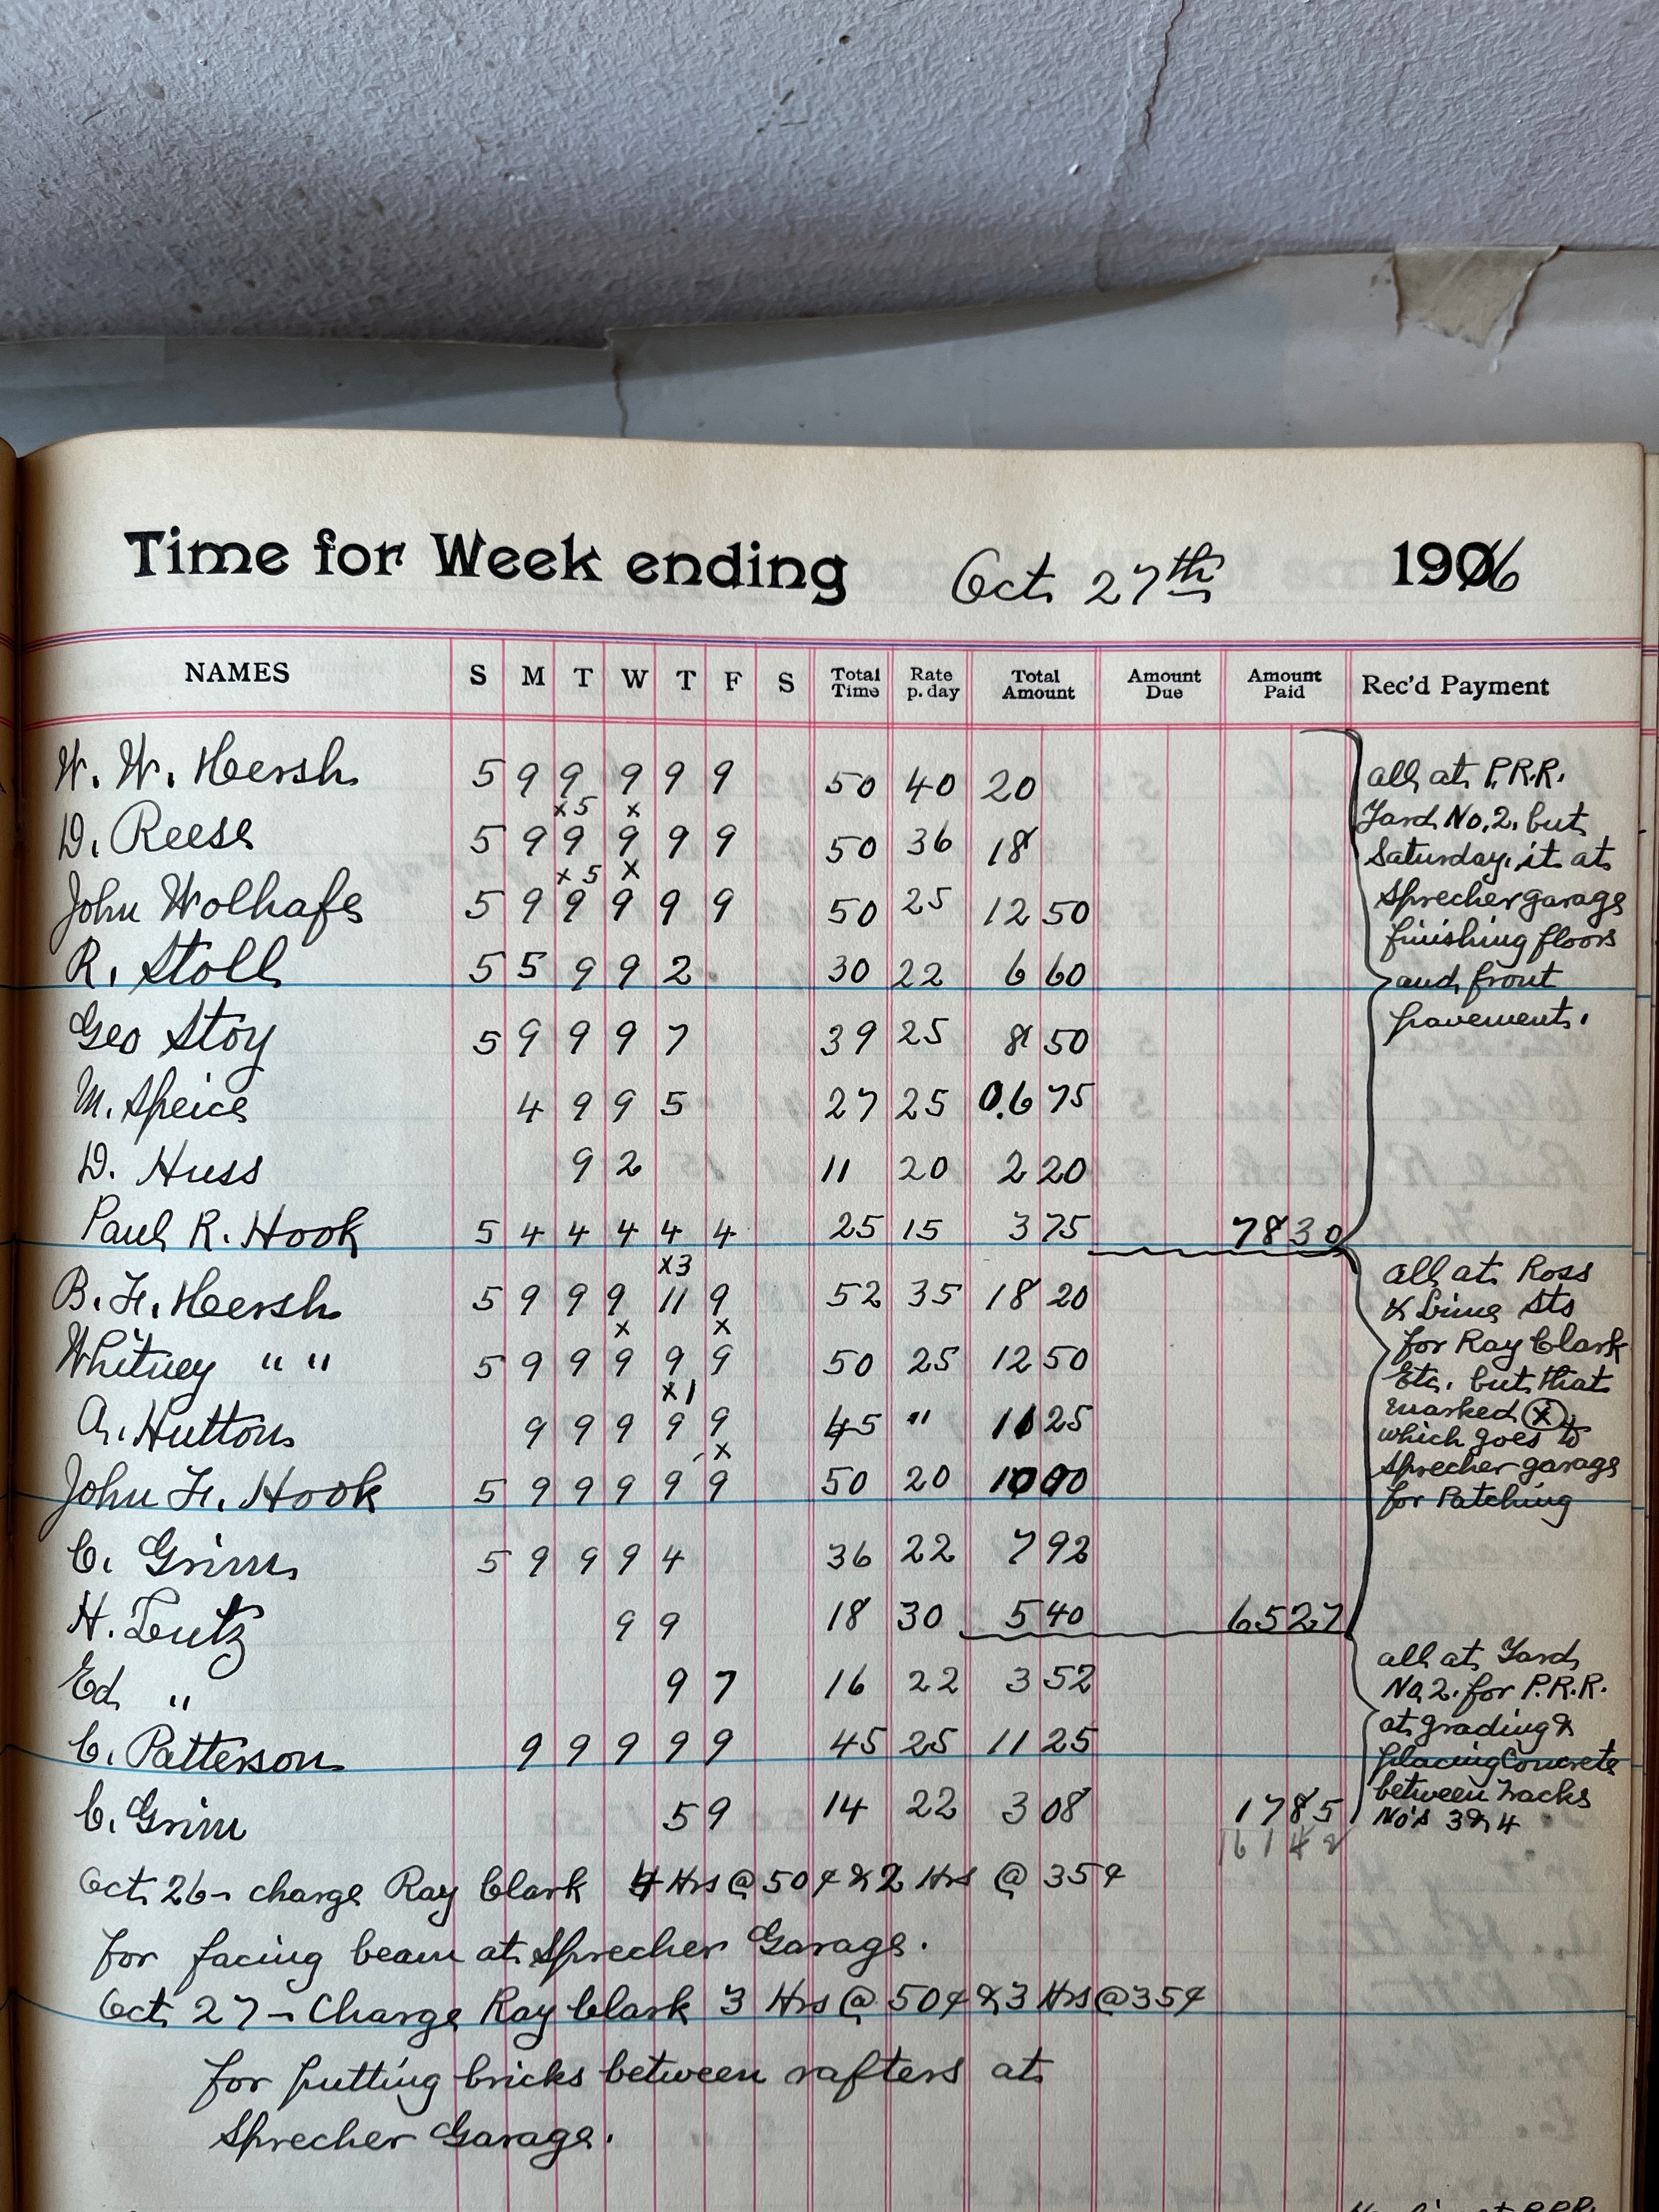 Time for Week ending Oct. 27th 1916
NAMES S M T W T F S Total Time Rate p. day Total Amount Amount Due Amount Paid Rec'd Payment
W. W. Hersh 5 9 9 9 9 9 50 40 20
x5 x
D. Reese 5 9 9 9 9 9 50 36 18
x5 x
John Wolhafe 5 9 9 9 9 9 50 25 12 50
R. Stoll 5 5 9 9 2 30 22 6 60
Geo Stoy 5 9 9 9 7 39 25 8 50
M. Speice 4 9 9 5 27 25 0.6 75
D. Huss 9 2 11 20 2 20
Paul R. Hook 5 4 4 4 4 4 25 15 3 75 78 30
all at P.R.R.
Yard No. 2. but
Saturday, it at
Sprecher garage
finishing floors
and front
pavement.
x3
B. F. Hersh 5 9 9 9 11 9 52 35 18 20
x x
Whitney " " 5 9 9 9 9 9 50 25 12 50
x1
A. Hutton 9 9 9 9 9 45 " 11 25
x
John F. Hook 5 9 9 9 9 9 50 20 10 00
C. Grim 5 9 9 9 4 36 22 7 92
H. Lutz 9 9 18 30 5 40 65 27
all at Ross
& Lime Sts
for Ray Clark
Etc. but that
marked (x)
which goes to
Sprecher garage
for Patching
Ed " 9 7 16 22 3 52
C. Patterson 9 9 9 9 9 45 25 11 25
C. Grim 5 9 14 22 3 08 17 85
161 42
all at Yard
No 2. for P.R.R.
at grading &
placing Concrete
between tracks
No's 3 & 4
Oct. 26 - charge Ray Clark 4 Hrs @ 50¢ & 2 Hrs @ 35¢
for facing beam at Sprecher Garage.
Oct. 27 - Charge Ray Clark 3 Hrs @ 50¢ & 3 Hrs @ 35¢
for putting bricks between rafters at
Sprecher Garage.